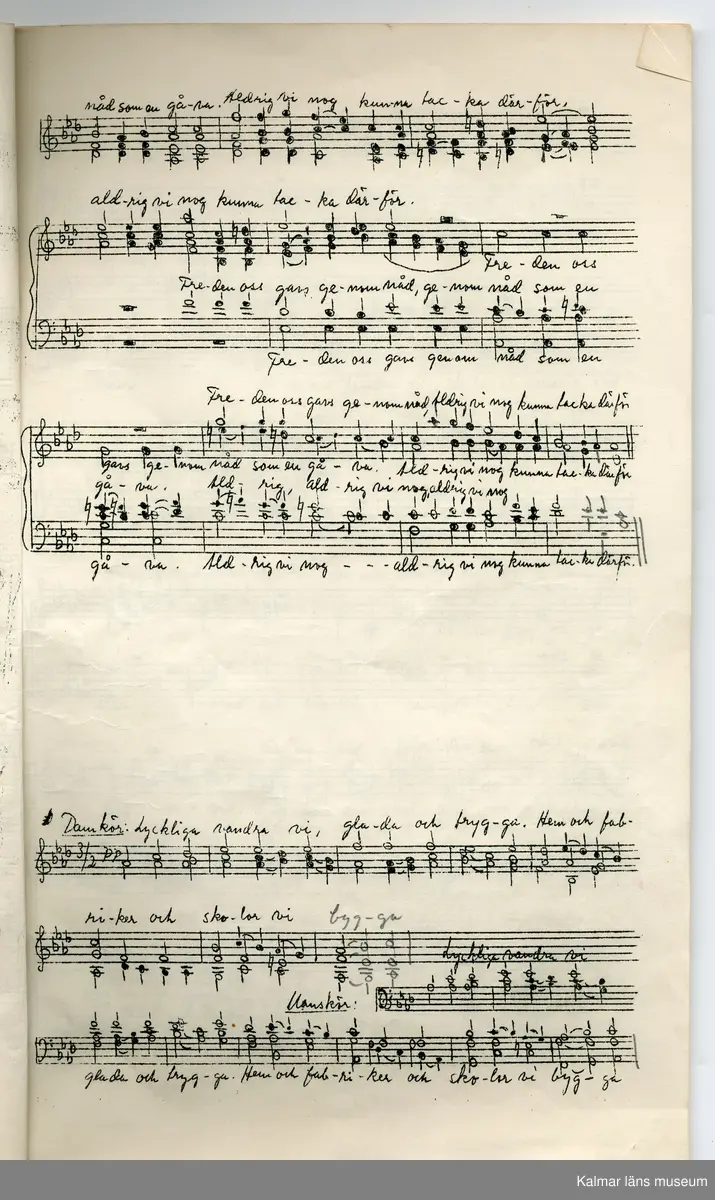 nåd som en gå-va. Aldrig vi nog kun-na tac-ka där-för,
ald-rig vi nog kunna tac-ka där-för.
Fre-den oss
Fre-den oss gavs ge-nom nåd, ge-nom nåd som en
Fre-den oss gavs genom nåd som en
Fre-den oss gavs ge-nom nåd, Aldrig vi nog kunna tacka därför
gavs ge-nom nåd som en gå-va. Ald-rig vi nog kunna tac-ka därför
gå-va. Ald-rig, ald-rig vi nog, aldrig vi nog
gå-va. Ald-rig vi nog - - - ald-rig vi nog kunna tac-ka därför.
Damkör: Lyckliga vandra vi, gla-da och tryg-ga. Hem och fab-
3/2 pp
ri-ker och sko-lor vi byg-ga
Lyckliga vandra vi
Manskör:
glada och tryg-ga. Hem och fab-ri-ker och sko-lor vi byg-ga
Kalmar läns museum